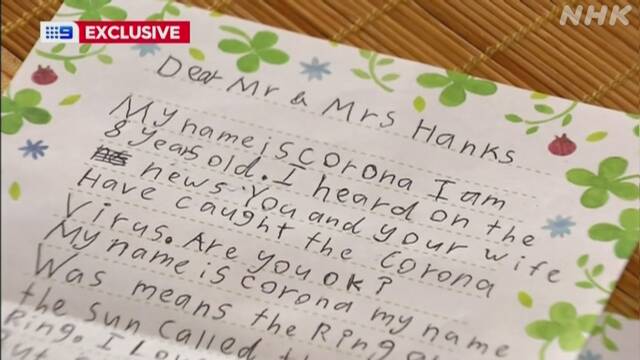 9 EXCLUSIVE
NHK
Dear Mr & Mrs Hanks
My name is corona I am
8 years old. I heard on the
news. You and your wife
Have caught the corona
Virus. Are you ok?
My name is corona my name
Was means the Ring
the sun called
Ring. I